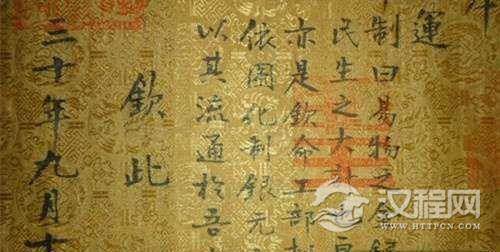 運
制曰易物之金
民生之大計也
亦是欽命工部
依圖化制銀元
以其流通於吾
欽此
三十年九月十
汉程网
HTTPCN.COM